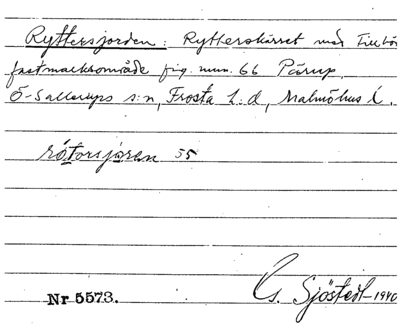 Ryttersjorden: Rytterskärret med Tillhö
fastmarksområde fig. num. 66 Pärup.
Ö-Sallerups s:n, Frosta h:d, Malmöhus L.
rötorsjoren 55
Nr 5573. G. Sjöstedt-1940